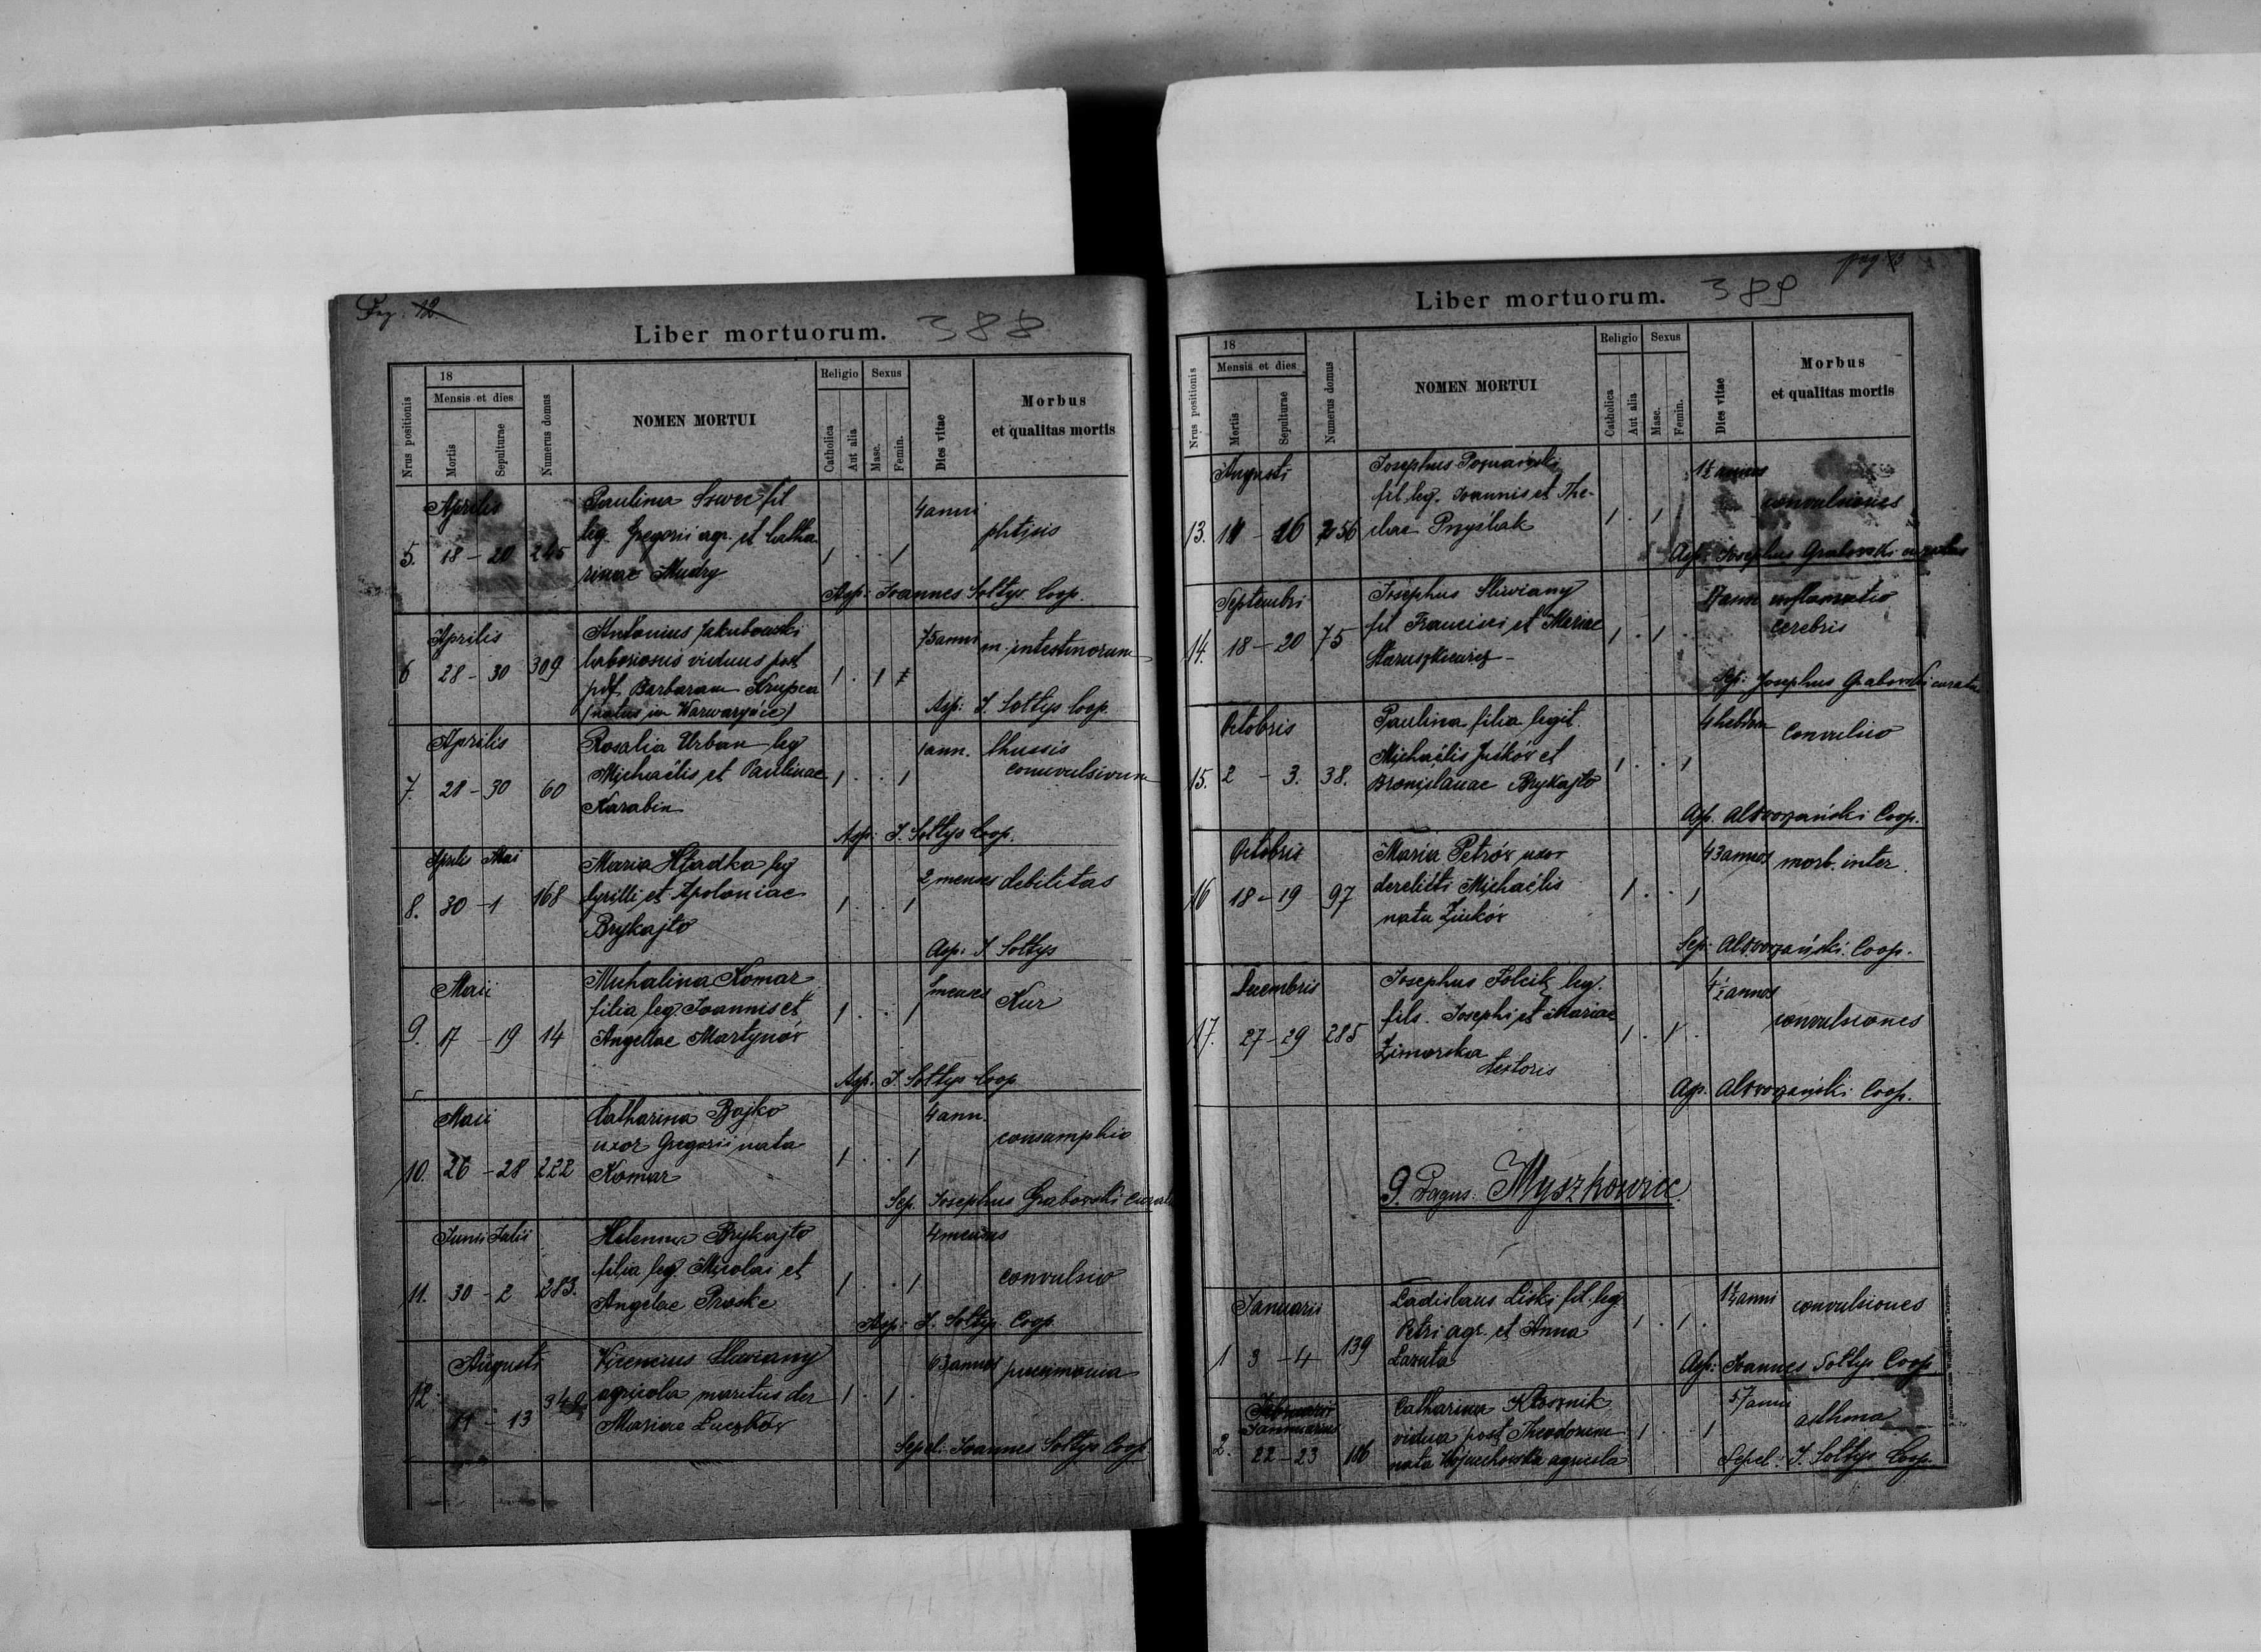 Pag. 12.
Liber mortuorum. 388
Nrus positionis
18
Mensis et dies
Mortis
Sepulturae
Numerus domus
NOMEN MORTUI
Religio
Catholica
Aut alia
Sexus
Masc.
Femin.
Dies vitae
Morbus
et qualitas mortis
Aprilis
5. 18 - 20 245
Paulina Szwec fil
leg. Gregorii agr. et Catha
rinae Mudry
1 . . 1
4 anni
phtysis
Asp: Joannes Sołtys Coop.
Aprilis
6 28 - 30 309
Antonius Jakubowski
laboriosus viduus post
pdf. Barbaram Krupca
(natus in Warwaryńce)
1 . 1
75 anni
m. intestinorum
Asp: J. Sołtys Coop.
Aprilis
7. 28 - 30 60
Rosalia Urban leg
Michaëlis et Paulinae
Karabin
1 . . 1
1 ann. thussis
convulsivum
Asp: J. Sołtys Coop.
Aprilis Mai
8. 30 - 1 168
Maria Hładka leg
Cyrilli et Apoloniae
Brykajło
1 . . 1
2 menses debilitas
Asp: J. Sołtys
Maii
9. 17 - 19 14
Michalina Komar
filia leg. Joannis et
Angellae Martynów
1 . . 1
menses
Kur
Asp. J. Sołtys Coop
Maii
10. 26 - 28 222
Catharina Bojko
uxor Gregorii nata
Komar
1 . . 1
4 ann.
consamphio
Sep. Josephus Grabovski
Junii Julii
11. 30 - 2 283.
Helenna Brykajło
filia leg. Nicolai et
Angelae Proske
1 . . 1
4 menses
convulsio
Asp: J. Sołtys Coop
Augusti
12. 11 - 13 349
Vicencius Sliwiany
agricola maritus der
Mariae Luczków
1 . 1 .
63 annos pneumonia
Sepel: Joannes Sołtys Coop.
pag. 13
Liber mortuorum. 389
Nrus positionis
18
Mensis et dies
Mortis
Sepulturae
Numerus domus
NOMEN MORTUI
Religio
Catholica
Aut alia
Sexus
Masc.
Femin.
Dies vitae
Morbus
et qualitas mortis
Augusti
13. 14 - 16 256
Josephus Poznański
fil. leg. Joannis et The-
clae Przyślak
1 . 1
1½ annos
convulsiones
Asp: Josephus Grabovski curatus
Septembri
14. 18 - 20 75
Josephus Sliwiany
fil Francisci et Mariae
Staruszkiewicz -
1 . 1 .
17 anni inflamatio
cerebris
Sep: Josephus Grabovski curatus
Octobris
15. 2 - 3. 38.
Paulina filia legit.
Michaëlis Juśków et
Bronislauae Brykajło
1 . . 1
4 hebdom convulsio
Asp. AlDworzański Coop.
Octobris
16 18 - 19 97
Maria Petrów uxor
derelicti Michaëlis
nata Zińków
1 . . 1
43 annos morb. inter.
Sep: AlDworzański Coop.
Decembris
17. 27 - 29 285
Josephus Folcik leg.
fils. Josephi et Mariae
Zimorska
textoris
1 . 1 .
4½ annos
convulsiones
Asp. AlDworzański Coop.
9. Pagus: Myszkowice
Januarii
1 3 - 4 139
Ladislaus Liski fil. leg.
Petri agr. et Anna
Lazuta
1 . 1 .
1¼ anni convulsiones
Asp: Joannes Sołtys Coop.
Februarii
Januarius
2. 22 - 23 186
Catharina Kłosnik
vidua post Theodorum
nata Wojciechowska agricola
1 . . 1
57 anni
asthma
Sepel: J. Sołtys Coop.